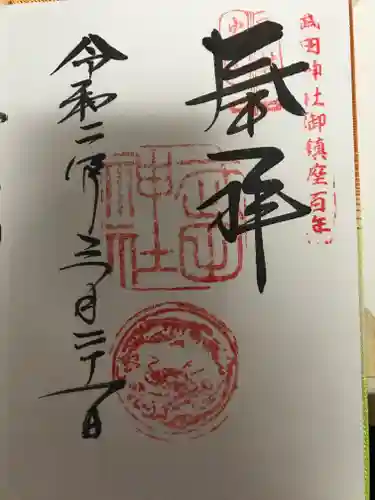 武田神社御鎮座百年
奉拝
武田神社
令和二年三月二十一日